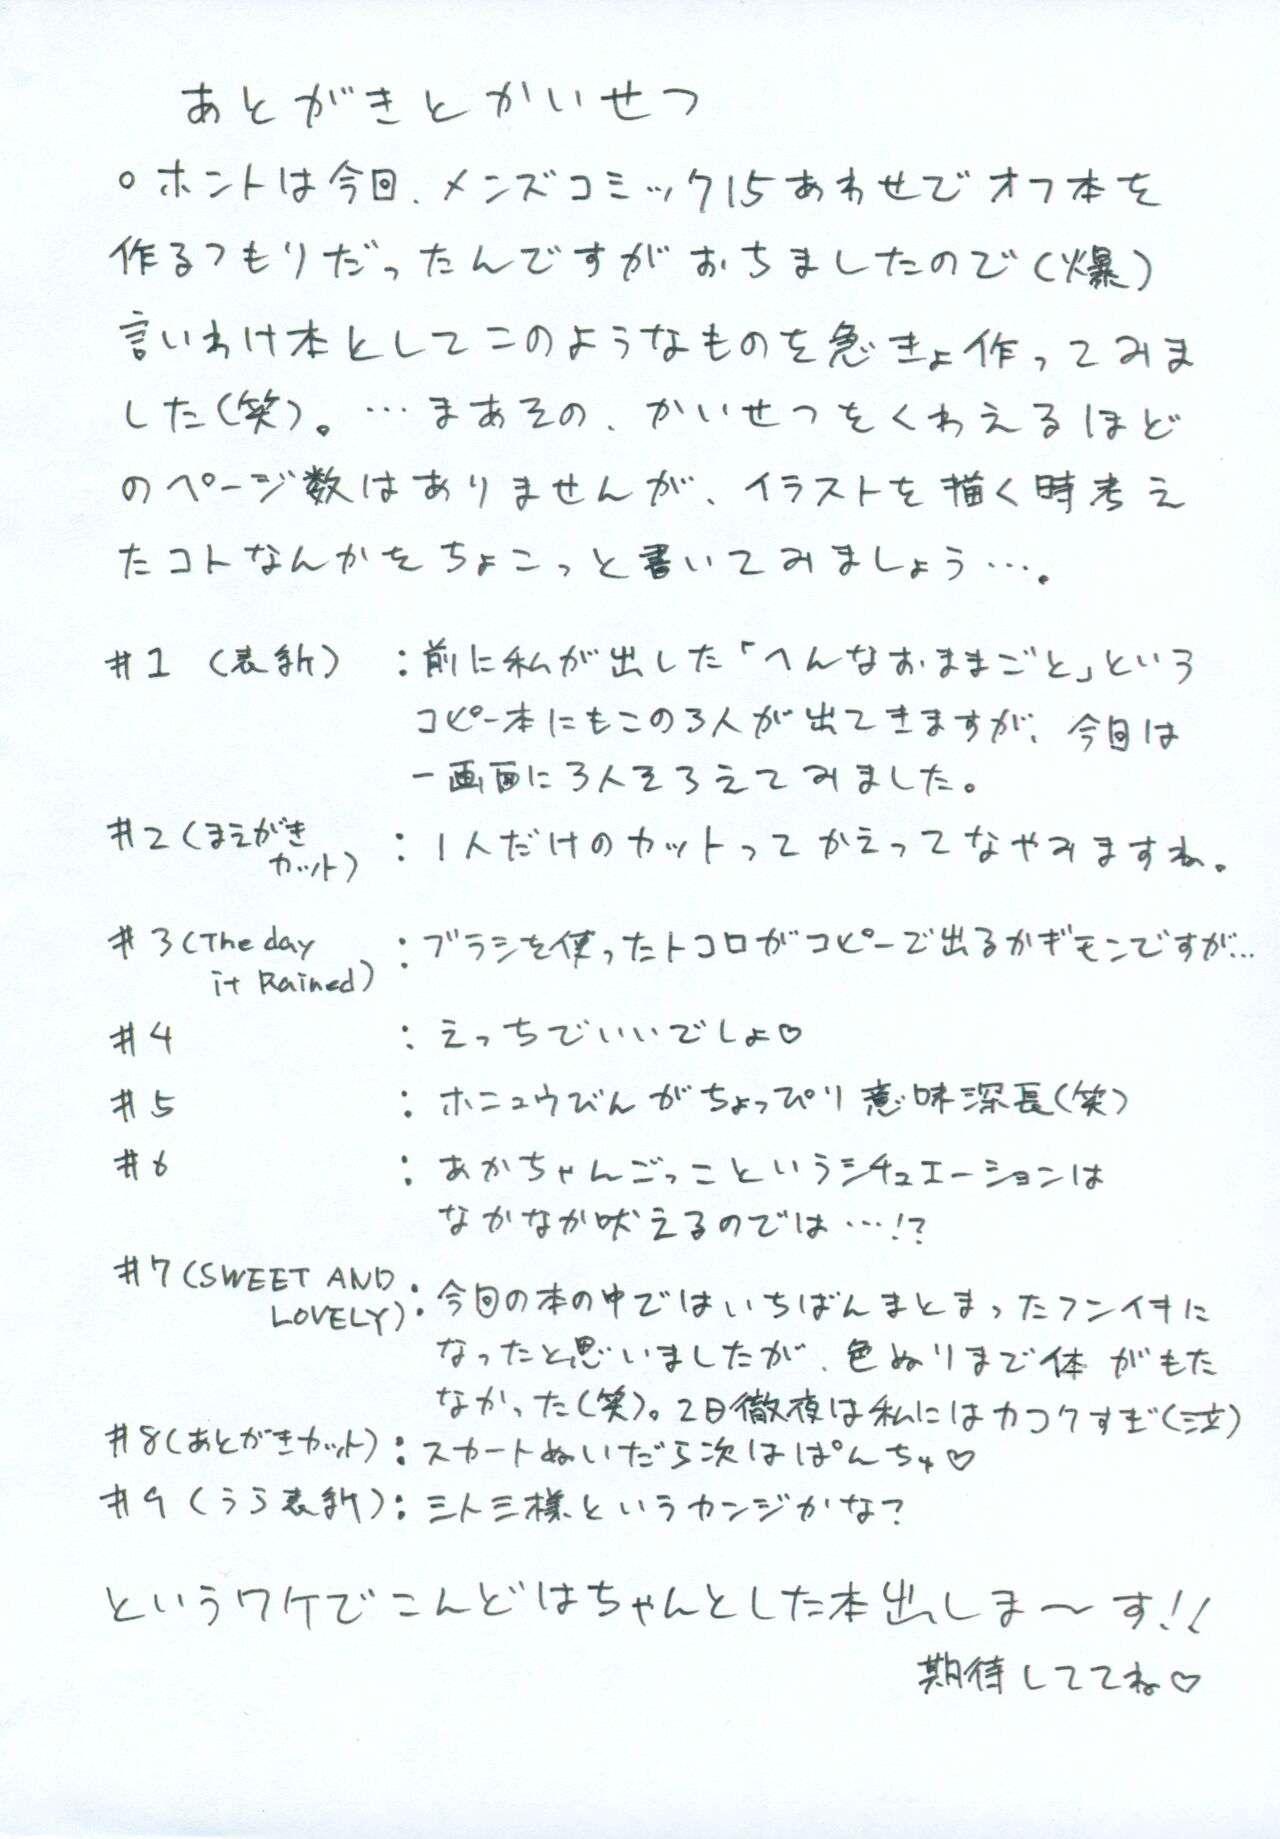 あとがきとかいせつ
○ホントは今回、メンズコミック15あわせでオフ本を
作るつもりだったんですがおちましたので(爆)
言いわけ本としてこのようなものを急きょ作ってみま
した(笑)。…まあその、かいせつをくわえるほど
のページ数はありませんが、イラストを描く時考え
たコトなんかをちょこっと書いてみましょう…。
#1 (表紙) : 前に私が出した「へんなおままごと」という
コピー本にもこの3人が出てきますが、今回は
一画面に3人そろえてみました。
#2(まえがき
カット) : 1人だけのカットってかえってなやみますね。
#3(The day
it Rained) : ブラシを使ったトコロがコピーで出るかギモンですが…
#4 : えっちでいいでしょ♡
#5 : ホニュウびんがちょっぴり意味深長(笑)
#6 : あかちゃんごっこというシチュエーションは
なかなか吠えるのでは…!?
#7(SWEET AND
LOVELY) : 今回の本の中ではいちばんまとまったフンイキに
なったと思いましたが、色ぬりまで体がもた
なかった(笑)。2日徹夜は私にはカコクすぎ(泣)
#8(あとがきカット) : スカートぬいだら次はぱんちゅ♡
#9(うら表紙) : 三ト三様というカンジかな?
というワケでこんどはちゃんとした本出しま〜す!!
期待しててね♡